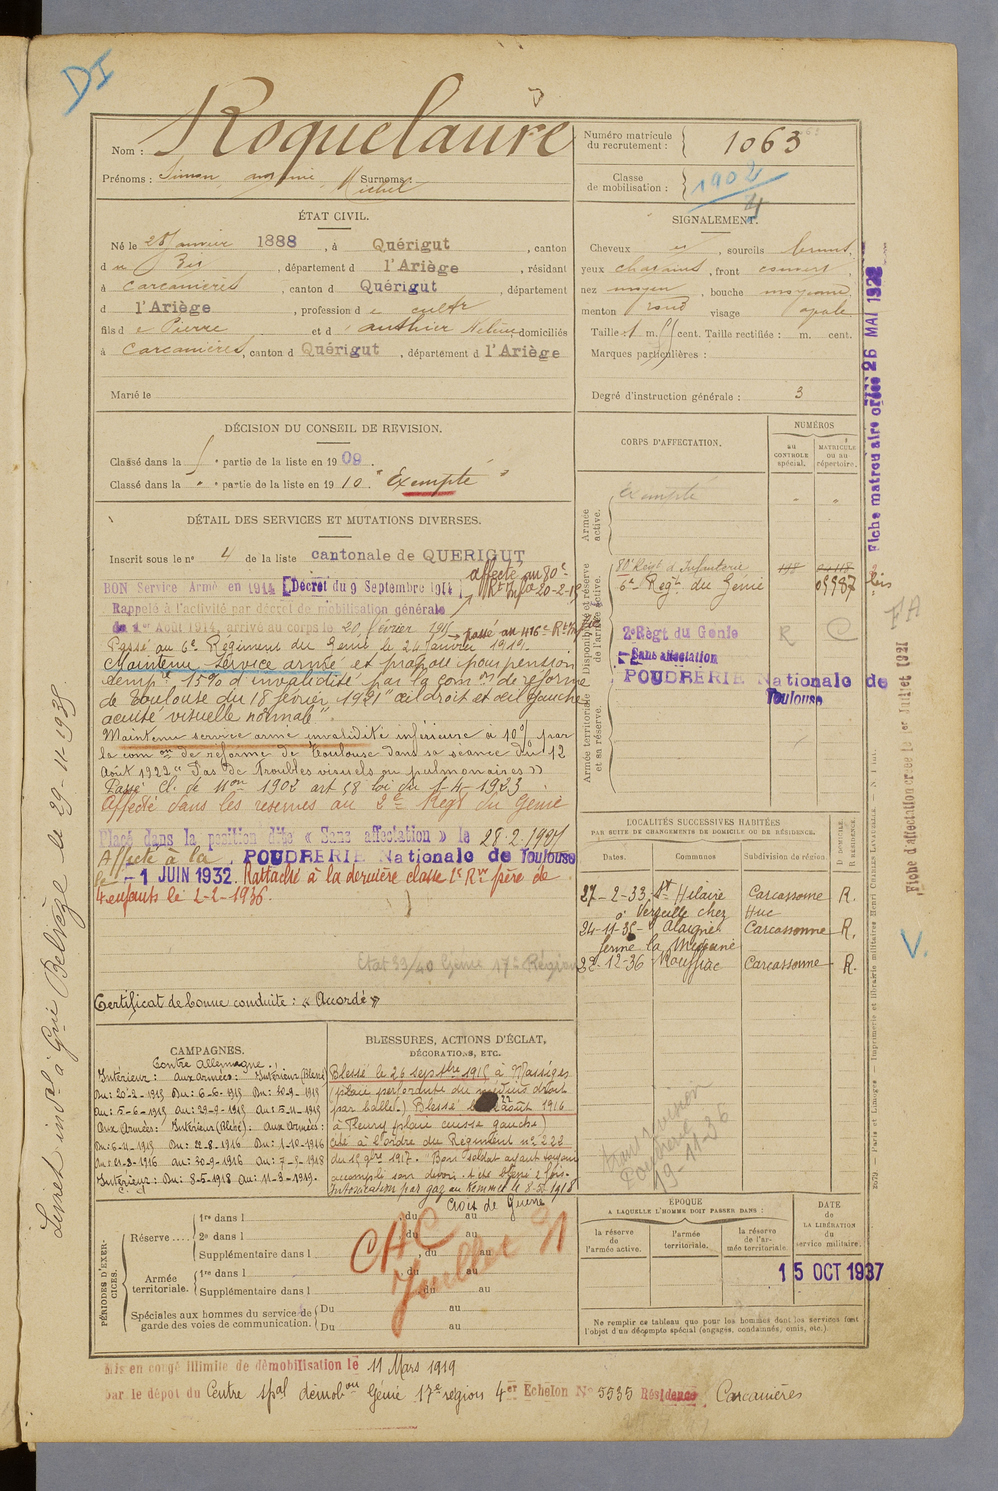 DI
Nom : Roquelaure
Prénoms : Simon, Michel Surnoms :
Numéro matricule du recrutement : 1063
Classe de mobilisation : 1902
4
ÉTAT CIVIL.
Né le 28 Janvier 1888, à Quérigut, canton
d u , département d l'Ariège, résidant
à Carcanières, canton d Quérigut, département
d l'Ariège, profession d e cultr
fils d e Pierre et d authier domiciliés
à Carcanières, canton d Quérigut, département d l'Ariège
Marié le
SIGNALEMENT.
Cheveux , sourcils bruns,
yeux chatains, front couvert,
nez moyen, bouche moyenne,
menton rond visage ovale
Taille : 1 m. cent. Taille rectifiée : m. cent.
Marques particulières :
Degré d'instruction générale : 3
DÉCISION DU CONSEIL DE REVISION.
Classé dans la 5e partie de la liste en 1909.
Classé dans la " e partie de la liste en 1910. "Exempté"
DÉTAIL DES SERVICES ET MUTATIONS DIVERSES.
Inscrit sous le no 4 de la liste cantonale de QUERIGUT
BON Service Armé en 1914 [Décret du 9 Septembre 1914]
affecté au 80e Rt Infie 20-2-15
Rappelé à l'activité par décret de mobilisation générale
du 1er Août 1914, arrivé au corps le 20 février 1915 → passé au 416e Rt Infie
Passé au 6e Régiment du Génie le 24 Janvier 1919.
Maintenu Service armé et proposé pour pension
temp.re 15% d'invalidité par la com.on de réforme
de Toulouse du 18 février 1921 "œil droit et œil gauche
acuité visuelle normale".
Maintenu service armé invalidité inférieure à 10% par
la com on de réforme de Toulouse dans sa séance du 12
Août 1922 "Pas de Troubles visuels ou pulmonaires"
Passé Cl. de Mon 1902 art 58 loi du 1-4-1923
Affecté dans les réserves au 2e Regt du Génie
Placé dans la position dite « Sans affectation » le 28.2.1927
Affecté à la POUDRERIE Nationale de Toulouse
le - 1 JUIN 1932. Rattaché à la dernière classe 2e Rve père de
4 enfants le 2-2-1936.
Etat 53/40 Génie 17e Région
Certificat de bonne conduite : « Accordé »
CORPS D'AFFECTATION.
NUMÉROS
au CONTROLE spécial.
MATRICULE ou au répertoire.
Armée active.
Exempté " "
Disponibilité et réserve de l'armée active.
80e Regt d'Infanterie
6e Regt du Génie 09997 bis
2e Régt du Génie R C
Sans affectation
POUDRERIE Nationale de Toulouse
Armée territoriale et sa réserve.
LOCALITÉS SUCCESSIVES HABITÉES
PAR SUITE DE CHANGEMENTS DE DOMICILE OU DE RÉSIDENCE.
Dates. Communes Subdivision de région. D. DOMICILE. R. RÉSIDENCE.
27-2-33 St Hilaire Carcassonne R.
Verzeille chez Huc
24-11-35 Alaigne Carcassonne R.
ferme la
22-12-36 Rouffiac Carcassonne R.
CAMPAGNES.
Contre Allemagne :
Intérieur : Aux Armées : Intérieur (Blessé)
Du : 20-2-1915 Du : 6-6-1915 Du : 30-9-1915
Au : 5-6-1915 Au : 29-9-1915 Au : 5-11-1915
Aux Armées : Intérieur (Blessé) : Aux Armées :
Du : 6-11-1915 Du : 22-8-1916 Du : 1-10-1916
Au : 21-8-1916 Au : 30-9-1916 Au : 7-5-1918
Intérieur : Du : 8-5-1918 Au : 11-3-1919.
BLESSURES, ACTIONS D'ÉCLAT,
DÉCORATIONS, ETC.
Blessé le 26 septbre 1915 à Massiges
(plaie perforante du droit
par balle.) Blessé le 22 août 1916
à Fleury (plaie cuisse gauche)
Cité à l'ordre du Régiment no 223
du 15 9bre 1917. "Bon soldat ayant toujours
accompli son devoir. A été blessé 2 fois.
Intoxication par gaz au Kemmel le 8-5-1918
Croix de Guerre
Poudrerie
19-11-36
PÉRIODES D'EXERCICES.
Réserve .... 1re dans l du au
2e dans l du au
Supplémentaire dans l , du au
Armée territoriale. 1re dans l du au
Supplémentaire dans l , du au
Spéciales aux hommes du service de garde des voies de communication. Du au
Du au
CAC
Juillet 31
ÉPOQUE
A LAQUELLE L'HOMME DOIT PASSER DANS :
la réserve de l'armée active.
l'armée territoriale.
la réserve de l'armée territoriale
DATE de LA LIBÉRATION du service militaire.
15 OCT 1937
Ne remplir ce tableau que pour les hommes dont les services font l'objet d'un décompte spécial (engagés, condamnés, omis, etc.).
Mis en congé illimité de démobilisation le 11 Mars 1919
par le dépôt du Centre spal démobon Génie 17e région 4er Echelon No 5535 Résidence Carcanières
Livret indel à Gnie Belvèze le 29-11-1935
Fiche matriculaire créée 26 MAI 1932
Fiche d'affectation créée le 1er Juillet 1931
FA
V.
Paris et Limoges. — Imprimerie et librairie militaires Henri CHARLES-LAVAUZELLE.